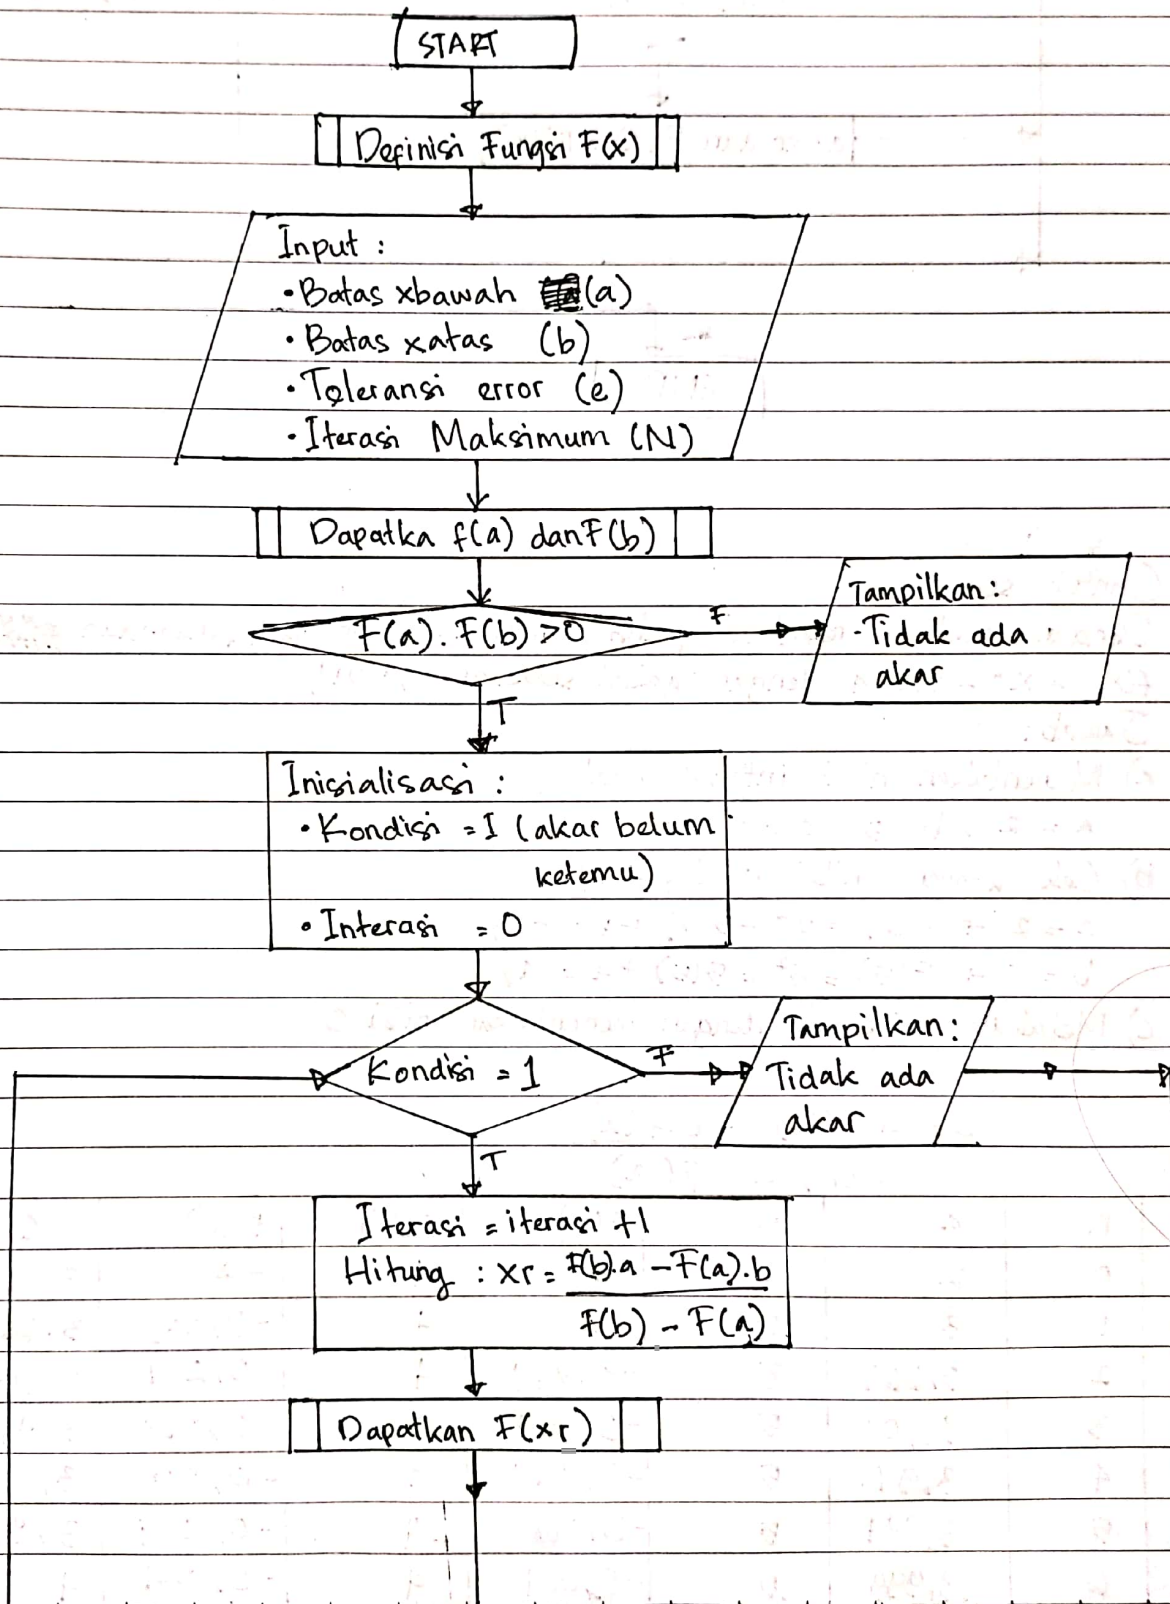 START
Definisi Fungsi F(x)
Input :
• Batas xbawah (a)
• Batas xatas (b)
• Toleransi error (e)
• Iterasi Maksimum (N)
Dapatka f(a) dan F(b)
F(a). F(b) >0
F
Tampilkan :
- Tidak ada
akar
T
Inisialisasi :
• Kondisi = I (akar belum
ketemu)
• Interasi = 0
Kondisi = 1
F
Tampilkan :
Tidak ada
akar
T
Iterasi = iterasi +1
Hitung : xr = F(b).a - F(a).b
F(b) - F(a)
Dapatkan F(xr)